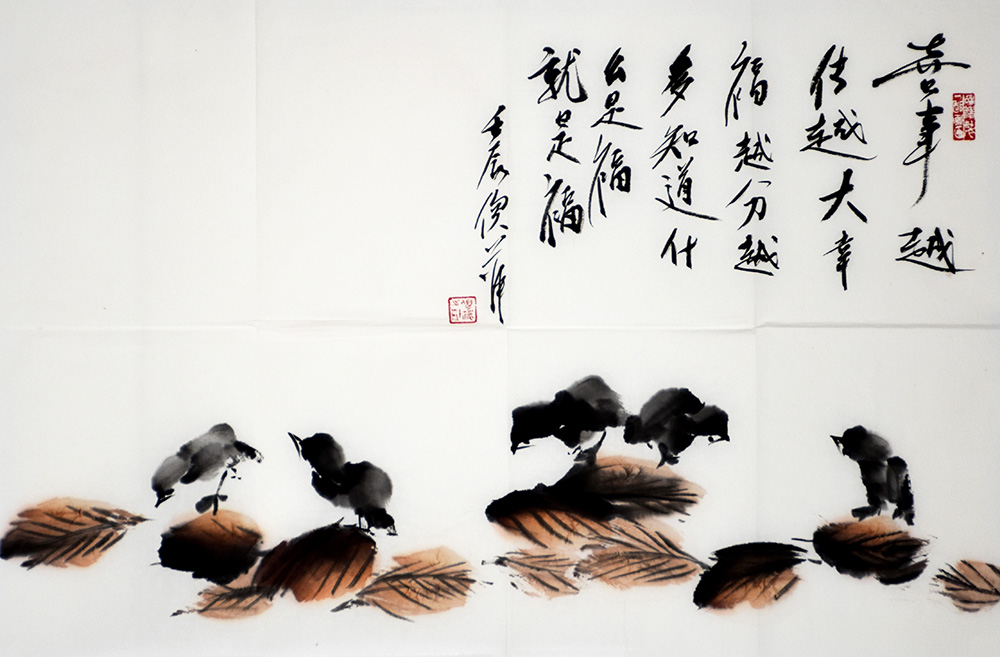 喜事越
传越大幸
福越分越
多知道什
么是福
就是福
壬辰